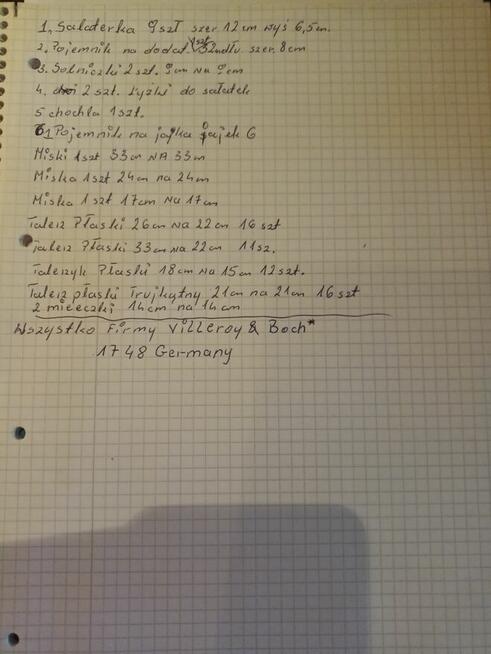 1, Salaterka 9szt szer 12cm wyś 6,5cm.
2. Pojemnik na dodat. 1szt szer. 8cm
3. Solniczki 2szt. 9cm na 9cm
4. 2 szt. Łyżki do sałatek
5 chochla 1szt.
6 1 Pojemnik na jajka jajek 6
Miski 1szt 33cm NA 33cm
Miska 1szt 24cm na 24cm
Miska 1 szt 17cm Na 17cm
Talerz Płaski 26cm NA 22cm 16szt
Talerz Płaski 33cm NA 22cm 11sz.
Talerzyk Płaski 18cm Na 15cm 12szt.
Talerz płaski Trujkątny 21cm na 21cm 16szt
2 mieczki 14cm na 14cm
Wszystko Firmy Villeroy & Boch*
1748 Germany